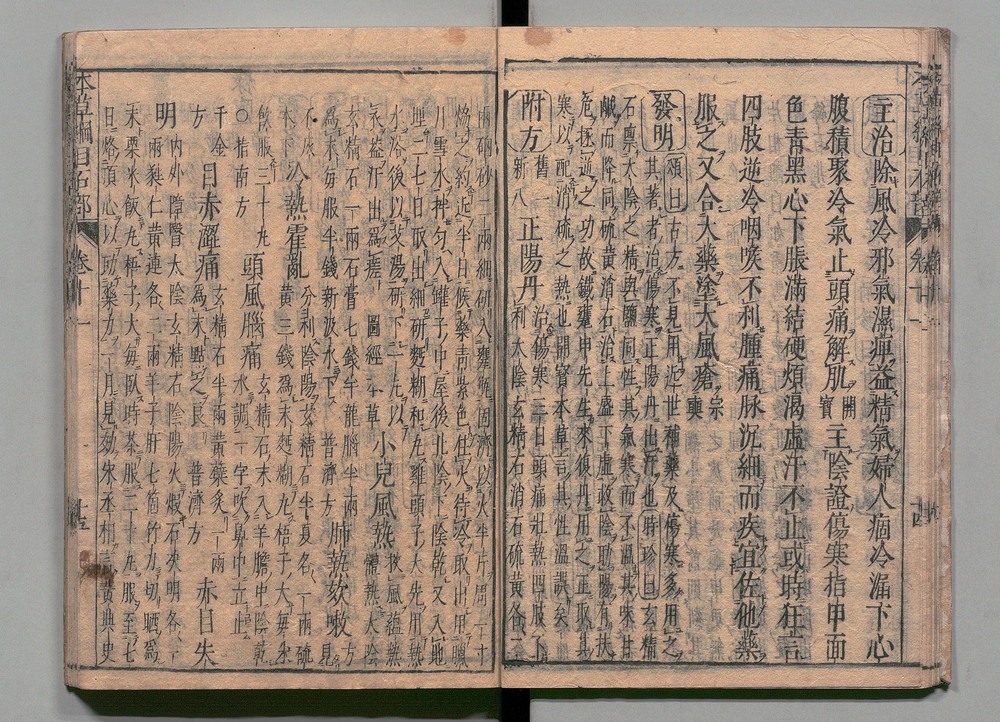 主治除風冷邪氣濕痺益精氣婦人痼冷漏下心
腹積聚冷氣止頭痛解肌開寶主陰證傷寒指甲面
色青黑心下脹滿結硬煩渴虛汗不止或時狂言
四肢逆冷咽喉不利腫痛脉沉細而疾宜佐他藥
服之又合大藥塗大風瘡宗奭
發明頌曰古方不見用近世補藥及傷寒多用之
其著者治傷寒正陽丹出汗也時珍曰玄精
石稟太陰之精與鹽同性其氣寒而不溫其味甘
鹹而降同硫黃消石治上盛下虛救陰助陽有扶
危拯逆之功故鐵甕申先生來復丹用之正取其
寒以配消硫之熱也開寶本草言其性溫誤矣
附方舊新八正陽丹治傷寒三日頭痛壯熱四肢不
利太陰玄精石消石硫黃各二
兩硇砂一兩細研入甆瓶固濟以火半斤周一寸
熁之約近半日候藥青紫色住火待冷取出用臘
月雪水拌匀入罐子中屋後北陰下陰乾又入地
埋二七日取出細研麪糊和丸雞頭子大先用熱
水浴後以艾湯研下一丸以
衣蓋汗出為瘥圖經本草小兒風熱挾風蘊熱
體熱太陰
玄精石一兩石膏七錢半龍腦半兩
為末每服半錢新汲水下普濟方肺熱欬嗽見
不灰木下冷熱霍亂分利陰陽玄精石半夏各一兩硫
黃三錢為末麪糊丸梧子大每米
飲服三十丸
○指南方頭風腦痛玄精石末入羊膽中陰乾
水調一字吹鼻中立止
千金方目赤澀痛玄精石半兩黃蘗炙一兩
為末點之良普濟方赤目失
明內外障瞖太陰玄精石陰陽火煅石決明各一
兩蕤仁黃連各二兩羊子肝七箇竹刀切晒為
末粟米飯丸梧子大每臥時茶服二十丸服至七
日烙頂心以助藥力一月見效宋丞相言黃典史
本草綱目石部
卷十一